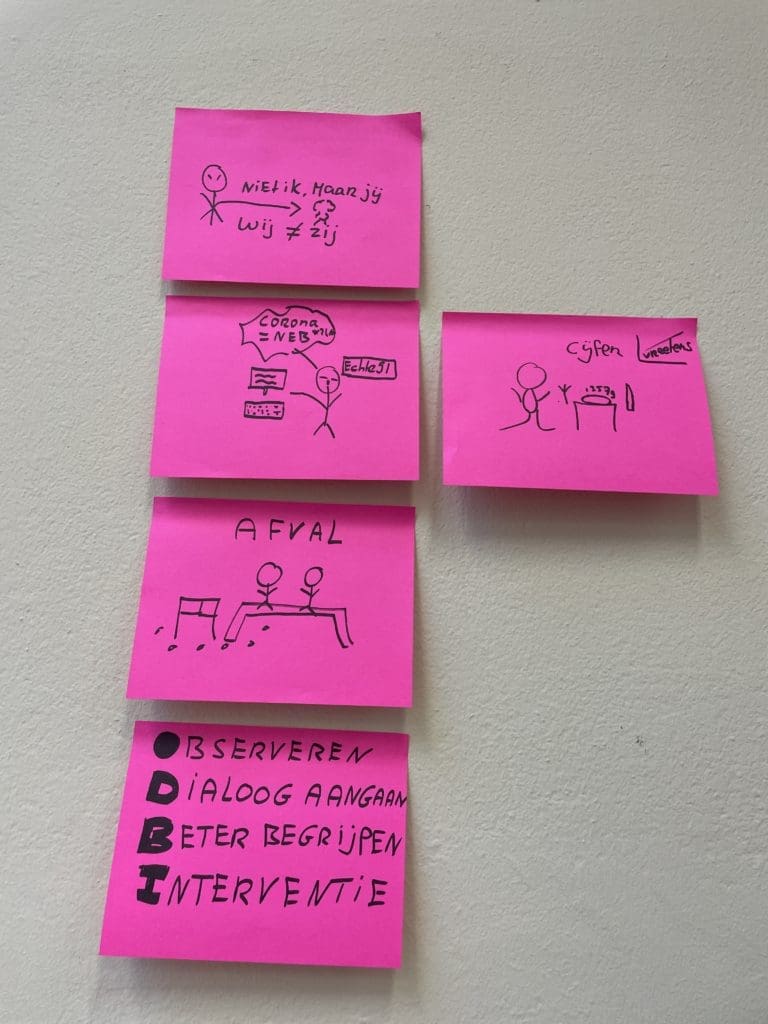 NiET iK, Maar jij
Wij ≠ zij
Corona
= NEP
Echte
Cijfen
AFVAL
OBSERVEREN
DiALOOG AANGAAN
BETER BEGRiJPEN
INTERVENTiE